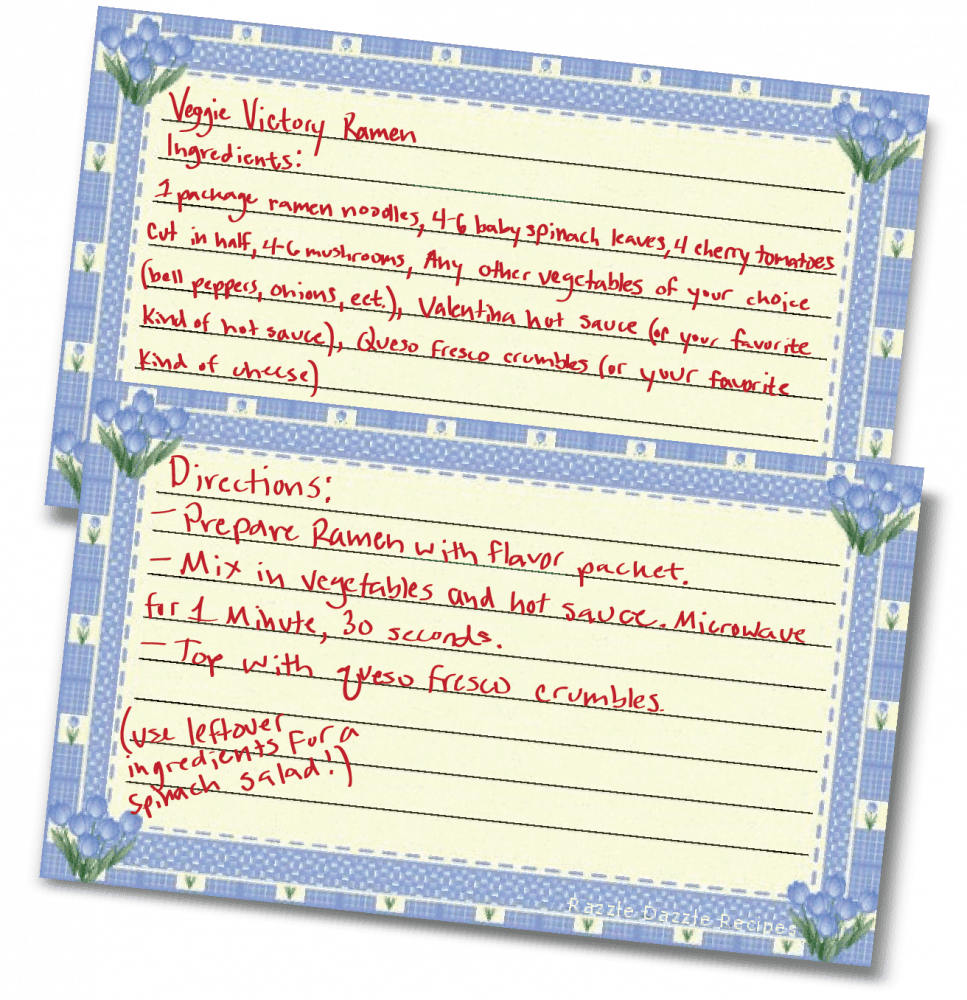 Veggie Victory Ramen
Ingredients:
1 package ramen noodles, 4-6 baby spinach leaves, 4 cherry tomatoes
cut in half, 4-6 mushrooms, Any other vegetables of your choice
(bell peppers, onions, ect.), Valentina hot sauce (or your favorite
kind of hot sauce), Queso fresco crumbles (or your favorite
kind of cheese)
Directions:
- Prepare Ramen with flavor packet.
- Mix in vegetables and hot sauce. Microwave
for 1 Minute, 30 seconds.
- Top with queso fresco crumbles.
(use leftover
ingredients for a
spinach salad!)
Razzle Dazzle Recipes